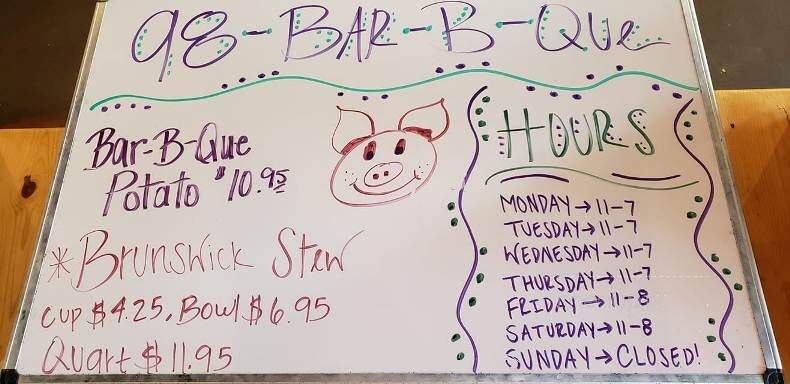 98-BAR-B-QUe
Bar-B-Que
Potato $10.95
*Brunswick Stew
cup $4.25, Bowl $6.95
Quart $11.95
HOURS
MONDAY→11-7
TUESDAY→11-7
WEDNESDAY→11-7
THURSDAY→11-7
FRIDAY→11-8
SATURDAY→11-8
SUNDAY→CLOSED!